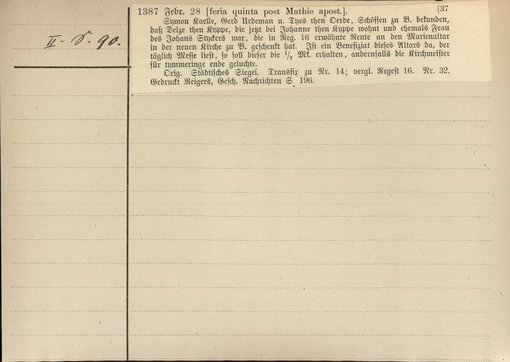 II. S. 90.
1387 Febr. 28 [feria quinta post Mathie apost.]. [37
Symon Kaelle, Gerd Urdeman u. Tyes then Oerde, Schöffen zu B. bekunden,
daß Delze then Kyppe, die jetzt bei Johanne then Kyppe wohnt und ehemals Frau
des Johans Styckers war, die in Reg. 16 erwähnte Rente an den Marienaltar
in der neuen Kirche zu B. geschenkt hat. Ist ein Benefiziat dieses Altars da, der
täglich Messe liest, so soll dieser die Mk. erhalten, andernfalls die Kirchmeister
für tymmeringe ende geluchte.
Orig. Städtisches Siegel. Transfix zu Nr. 14; vergl. Regest 16. Nr. 32.
Gedruckt Reigers, Gesch. Nachrichten S. 196.